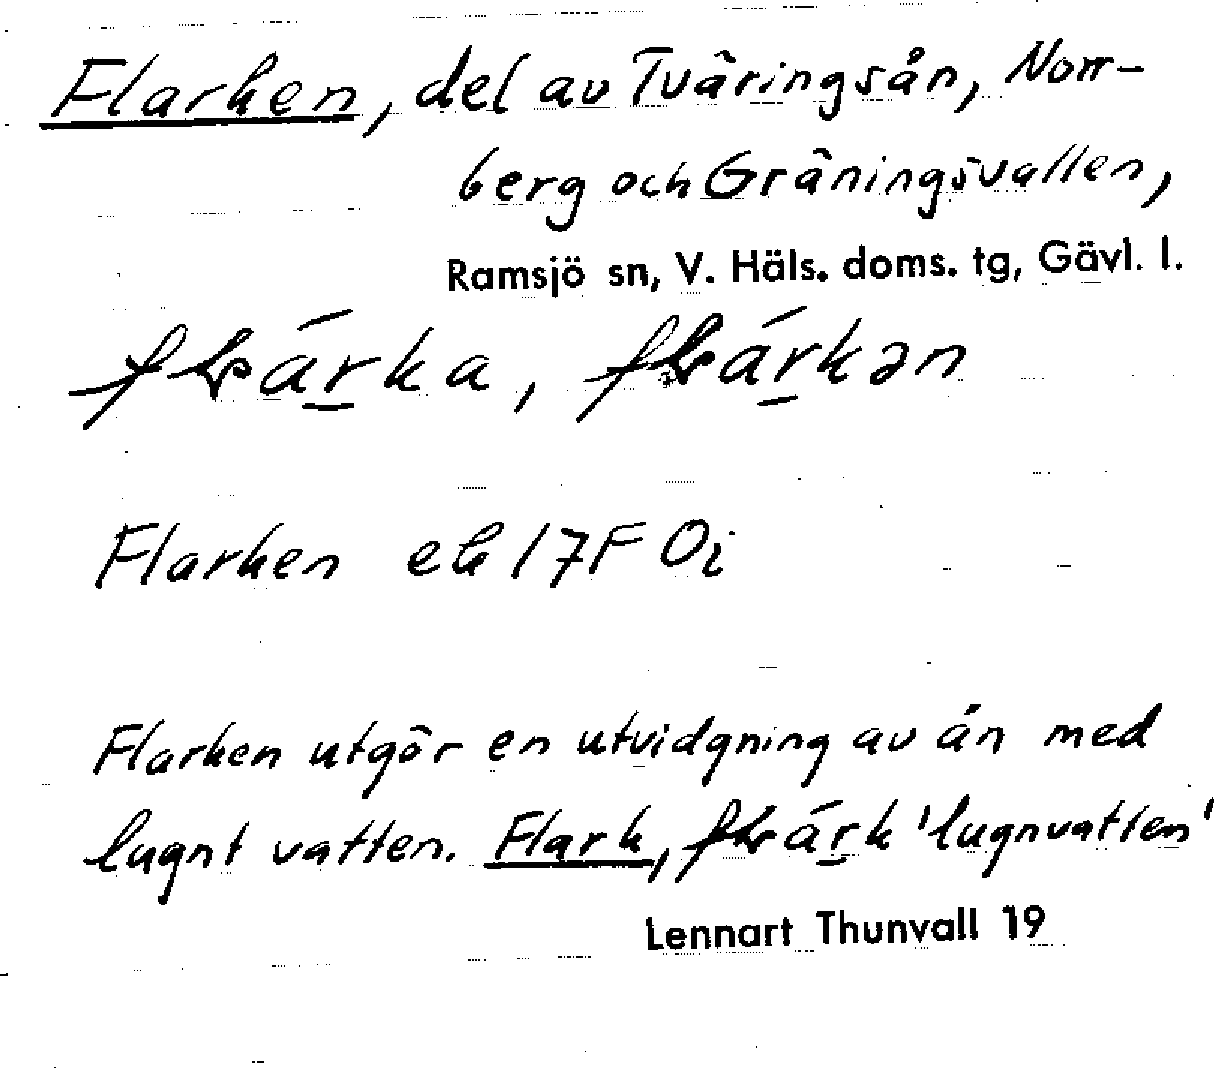 Flarken, del av Tväringsån, Norr-
berg och Gräningsvallen,
Ramsjö sn, V. Häls. doms. tg, Gävl. l.
Flarken ek 17F 0i
Flarken utgör en utvidgning av ån med
lugnt vatten. Flark, 'lugnvatten'
Lennart Thunvall 19